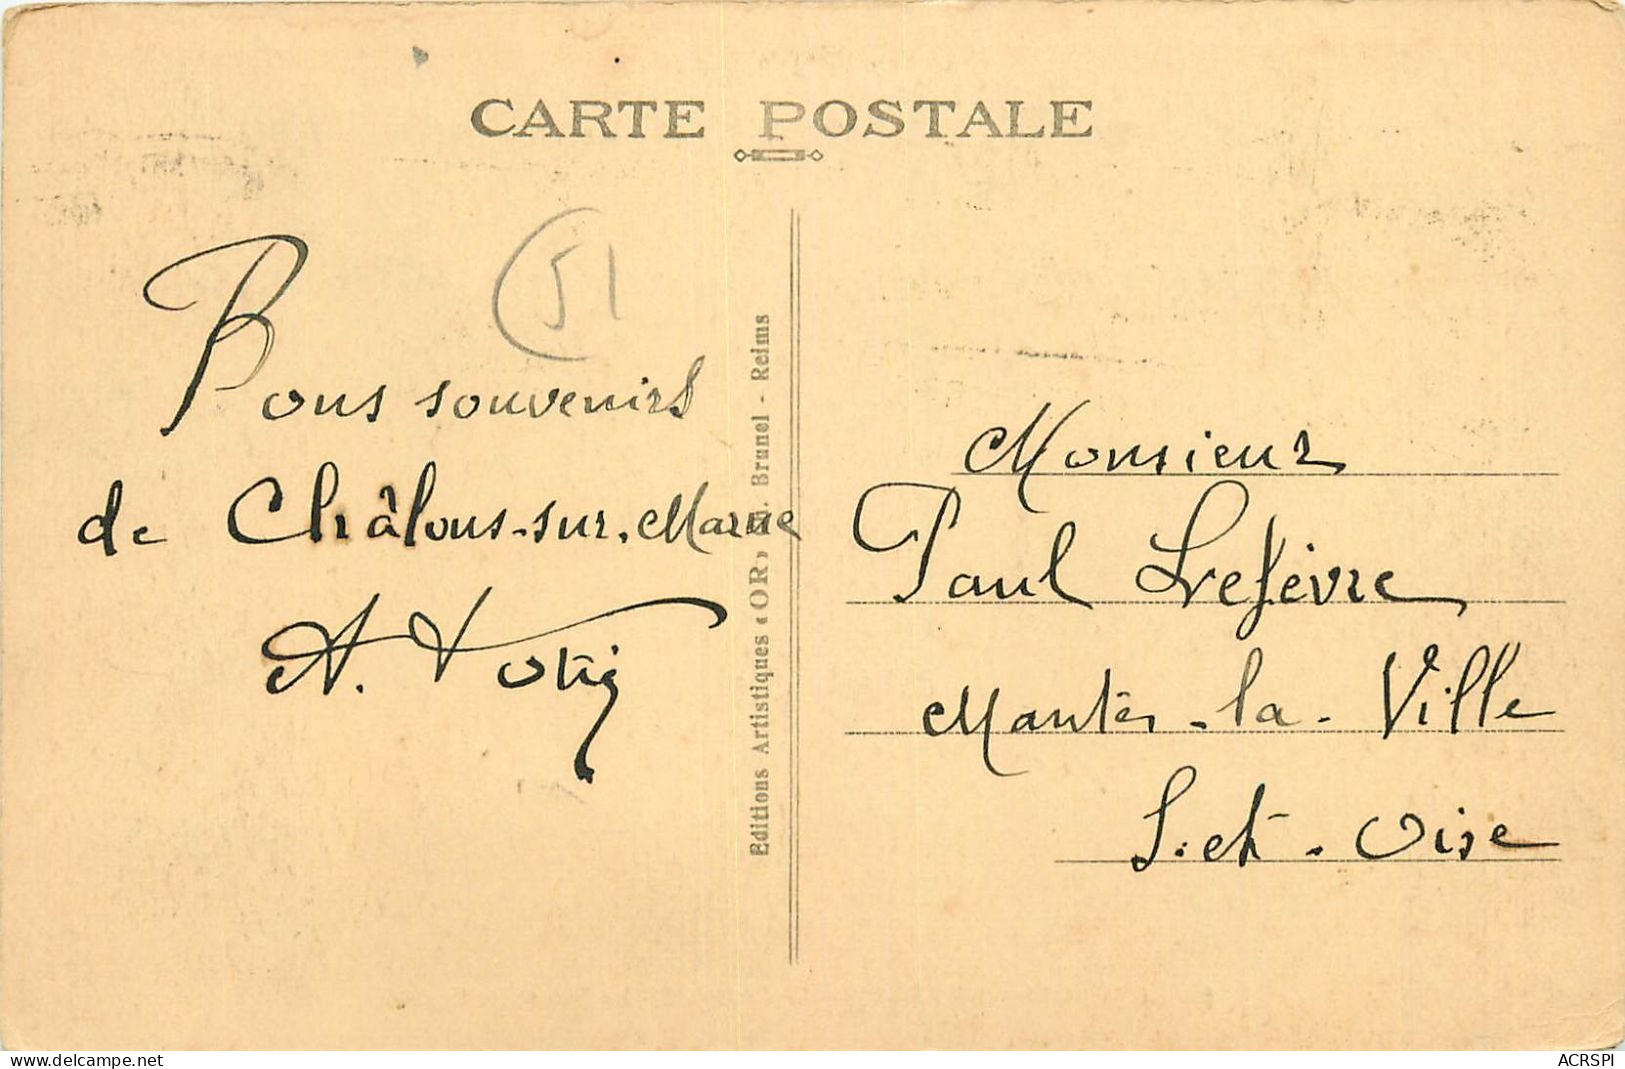 CARTE POSTALE
51
Bons souvenirs
de Châlons-sur-Marne
A.
Editions Artistiques « OR » Brunel - Reims
Monsieur
Paul Lefèvre
Mantes-la-Ville
S.et-Oise
www.delcampe.net
ACRSPI